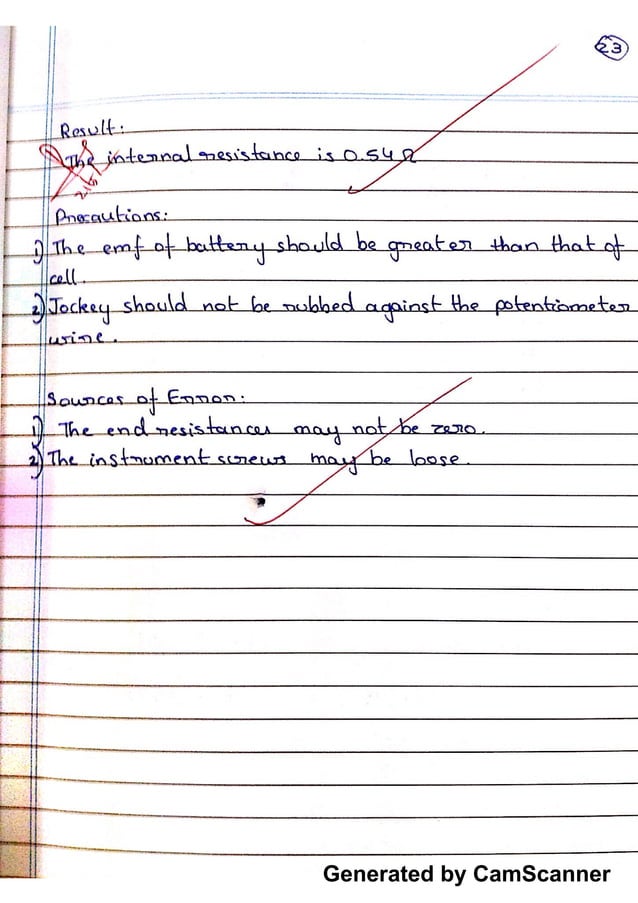 23
Result:
The internal resistance is 0.54 Ω
Precautions:
1) The emf of battery should be greater than that of
cell.
2) Jockey should not be rubbed against the potentiometer
wire.
Sources of Error:
1) The end resistances may not be zero.
2) The instrument screws may be loose.
Generated by CamScanner